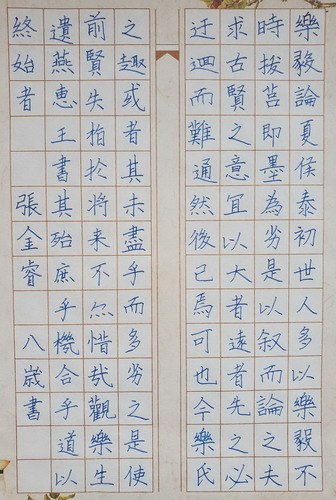 樂毅論夏侯泰初世人多以樂毅不
時拔莒即墨為劣是以叙而論之夫
求古賢之意宜以大者遠者先之必
迂迴而難通然後已焉可也今樂氏
之趣或者其未盡乎而多劣之是使
前賢失指扵將來不亦惜哉觀樂生
遺燕惠王書其殆庶乎機合乎道以
終始者 張金睿 八歲書